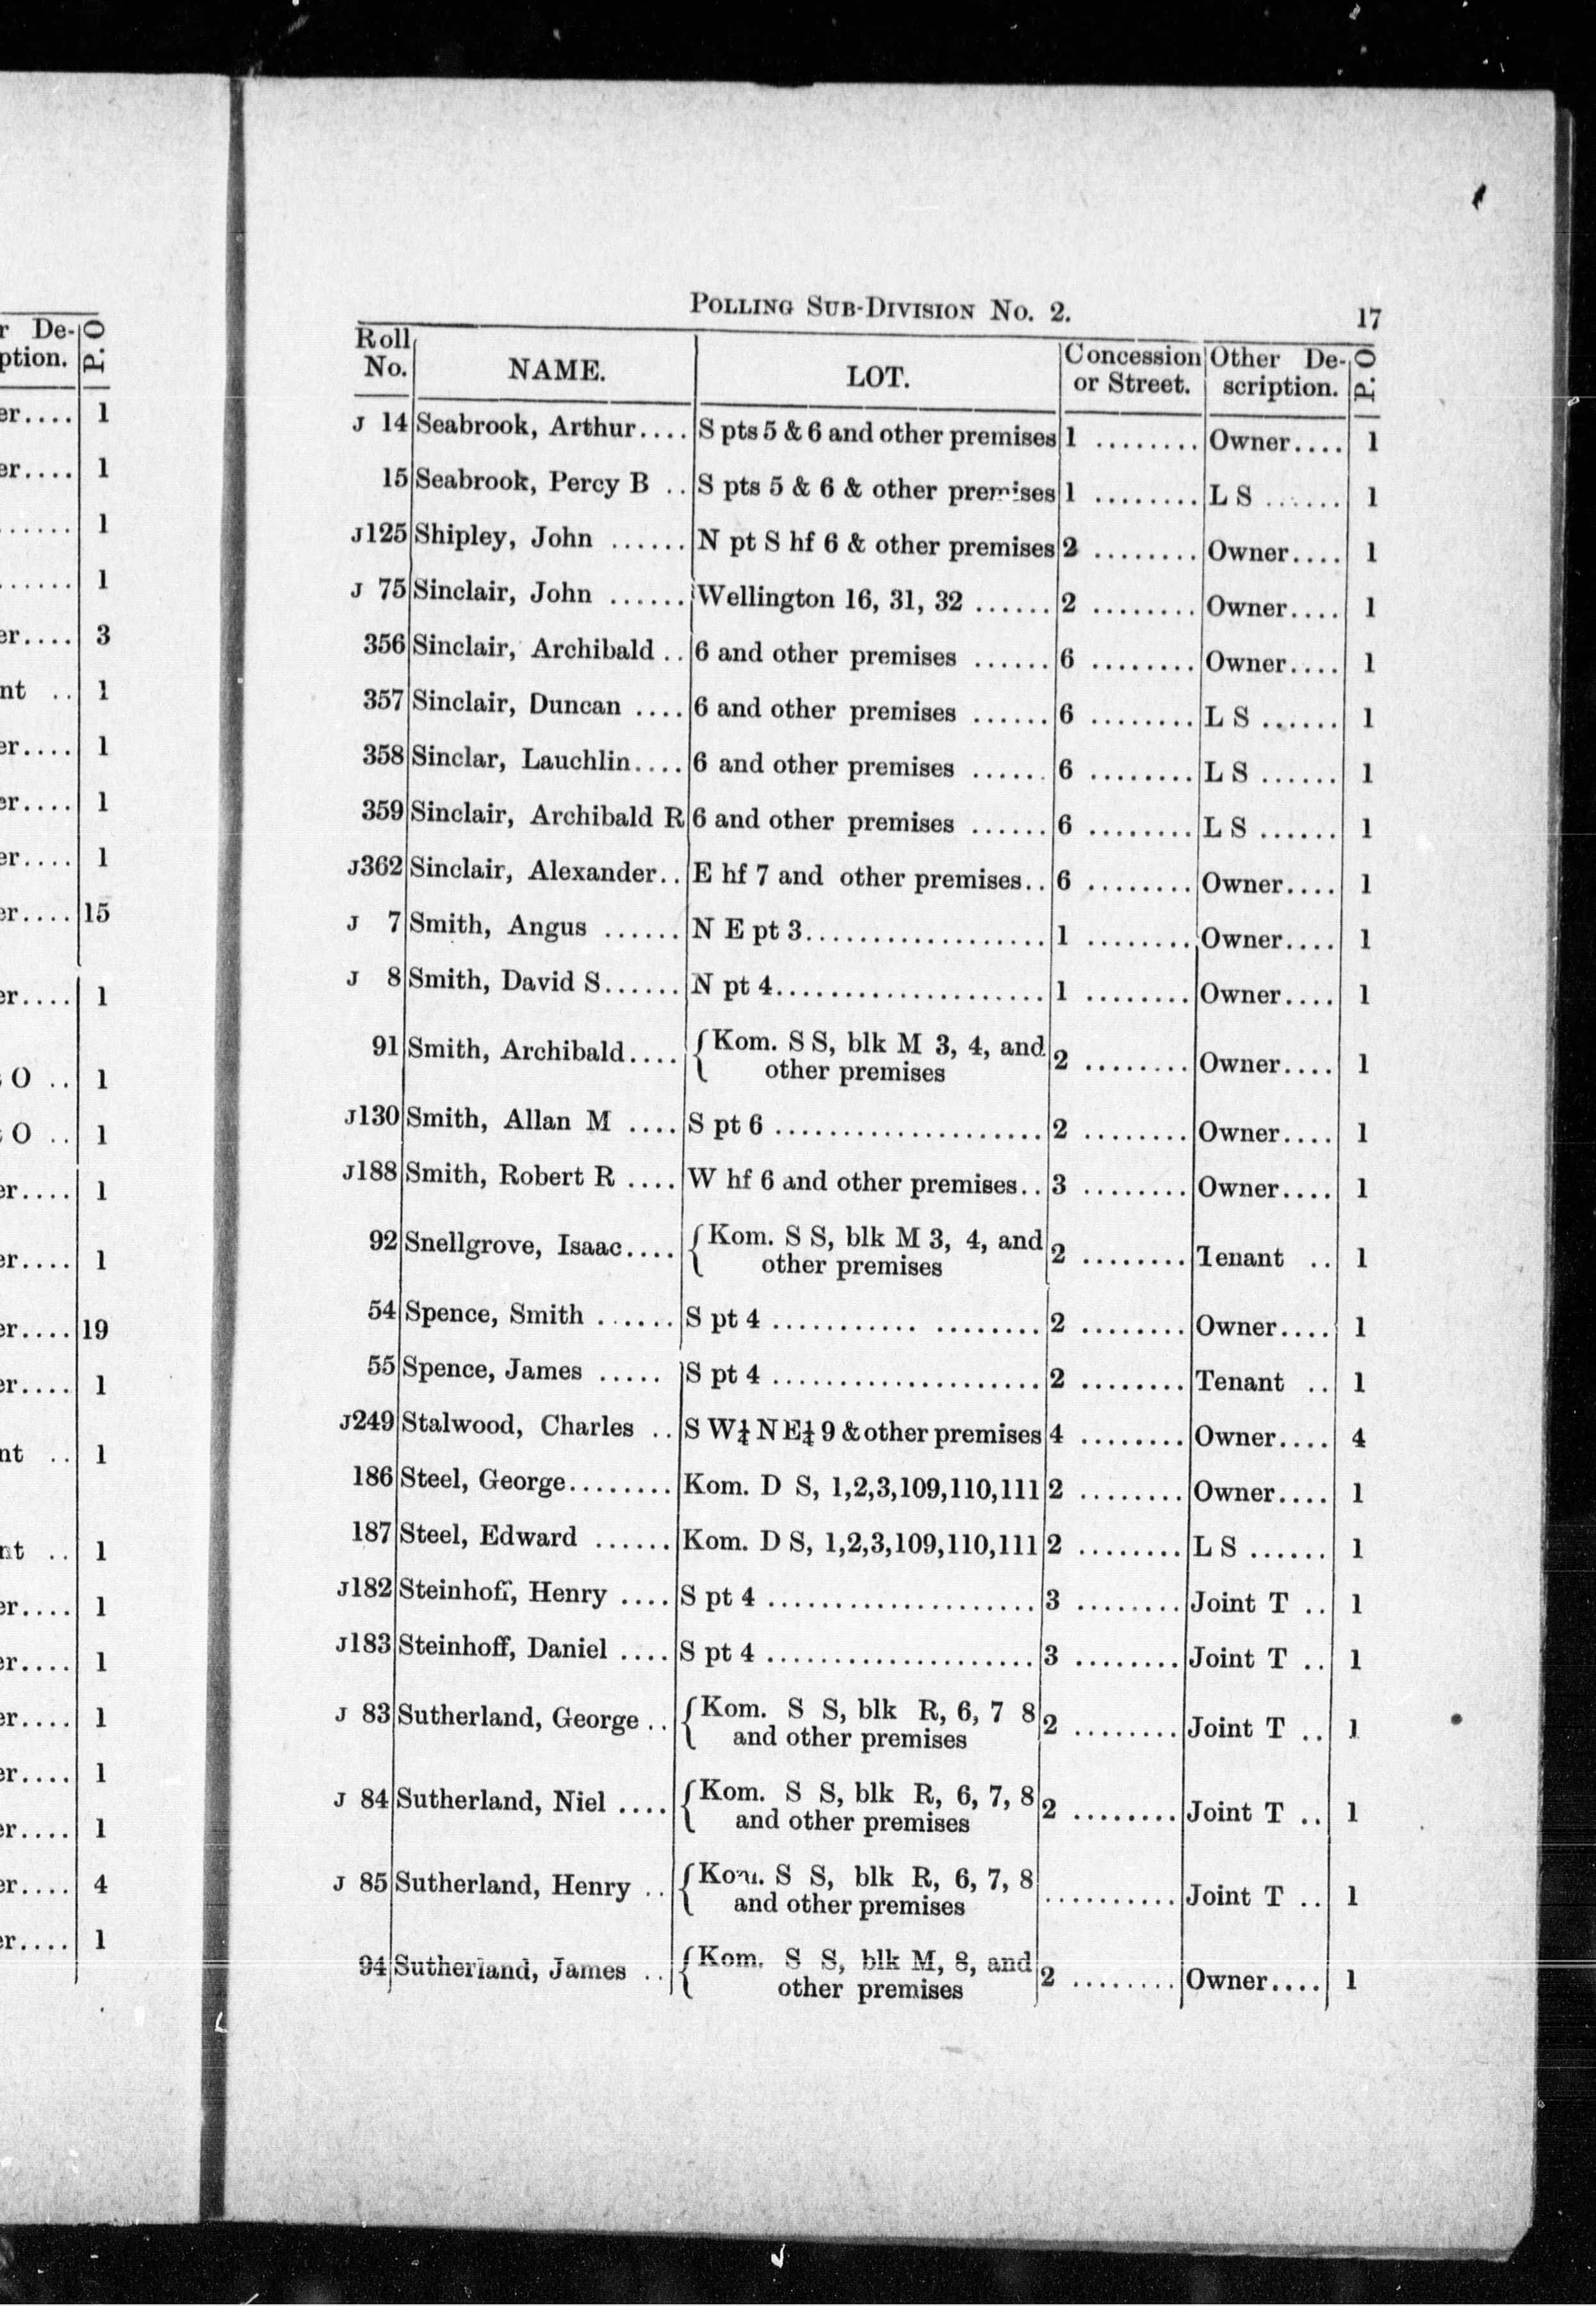 r De-
ption. P. O
er.... 1
er.... 1
...... 1
...... 1
er.... 3
nt .. 1
er.... 1
er.... 1
er.... 1
er.... 15
er.... 1
O .. 1
O .. 1
er.... 1
er.... 1
er.... 19
er.... 1
nt .. 1
nt .. 1
er.... 1
er.... 1
er.... 1
er.... 1
er.... 1
er.... 4
er.... 1
POLLING SUB-DIVISION No. 2. 17
Roll No. NAME. LOT. Concession or Street. Other De-scription. P. O
J 14 Seabrook, Arthur.... S pts 5 & 6 and other premises 1 ........ Owner.... 1
15 Seabrook, Percy B .. S pts 5 & 6 & other premises 1 ........ L S ...... 1
J125 Shipley, John ...... N pt S hf 6 & other premises 2 ........ Owner.... 1
J 75 Sinclair, John ...... Wellington 16, 31, 32 ...... 2 ........ Owner.... 1
356 Sinclair, Archibald .. 6 and other premises ...... 6 ........ Owner.... 1
357 Sinclair, Duncan .... 6 and other premises ...... 6 ........ L S ...... 1
358 Sinclar, Lauchlin.... 6 and other premises ...... 6 ........ L S ...... 1
359 Sinclair, Archibald R 6 and other premises ...... 6 ........ L S ...... 1
J362 Sinclair, Alexander.. E hf 7 and other premises.. 6 ........ Owner.... 1
J 7 Smith, Angus ...... N E pt 3.................. 1 ........ Owner.... 1
J 8 Smith, David S...... N pt 4.................... 1 ........ Owner.... 1
91 Smith, Archibald.... { Kom. S S, blk M 3, 4, and
other premises 2 ........ Owner.... 1
J130 Smith, Allan M .... S pt 6 .................... 2 ........ Owner.... 1
J188 Smith, Robert R .... W hf 6 and other premises.. 3 ........ Owner.... 1
92 Snellgrove, Isaac.... { Kom. S S, blk M 3, 4, and
other premises 2 ........ Tenant .. 1
54 Spence, Smith ...... S pt 4 ........... ........ 2 ........ Owner.... 1
55 Spence, James ..... S pt 4 .................... 2 ........ Tenant .. 1
J249 Stalwood, Charles .. S W¼ N E¼ 9 & other premises 4 ........ Owner.... 4
186 Steel, George........ Kom. D S, 1,2,3,109,110,111 2 ........ Owner.... 1
187 Steel, Edward ...... Kom. D S, 1,2,3,109,110,111 2 ........ L S ...... 1
J182 Steinhoff, Henry .... S pt 4 .................... 3 ........ Joint T .. 1
J183 Steinhoff, Daniel .... S pt 4 .................... 3 ........ Joint T .. 1
J 83 Sutherland, George .. { Kom. S S, blk R, 6, 7 8
and other premises 2 ........ Joint T .. 1
J 84 Sutherland, Niel .... { Kom. S S, blk R, 6, 7, 8
and other premises 2 ........ Joint T .. 1
J 85 Sutherland, Henry .. { Kom. S S, blk R, 6, 7, 8
and other premises .......... Joint T .. 1
94 Sutherland, James .. { Kom. S S, blk M, 8, and
other premises 2 ........ Owner.... 1